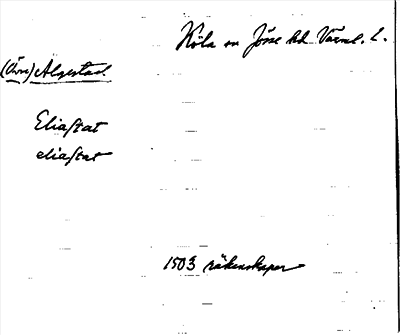 Köla sn Jösse hd Värml. l.
(Övre) Algestad.
Eliastat
eliastat
1503 räkenskaper